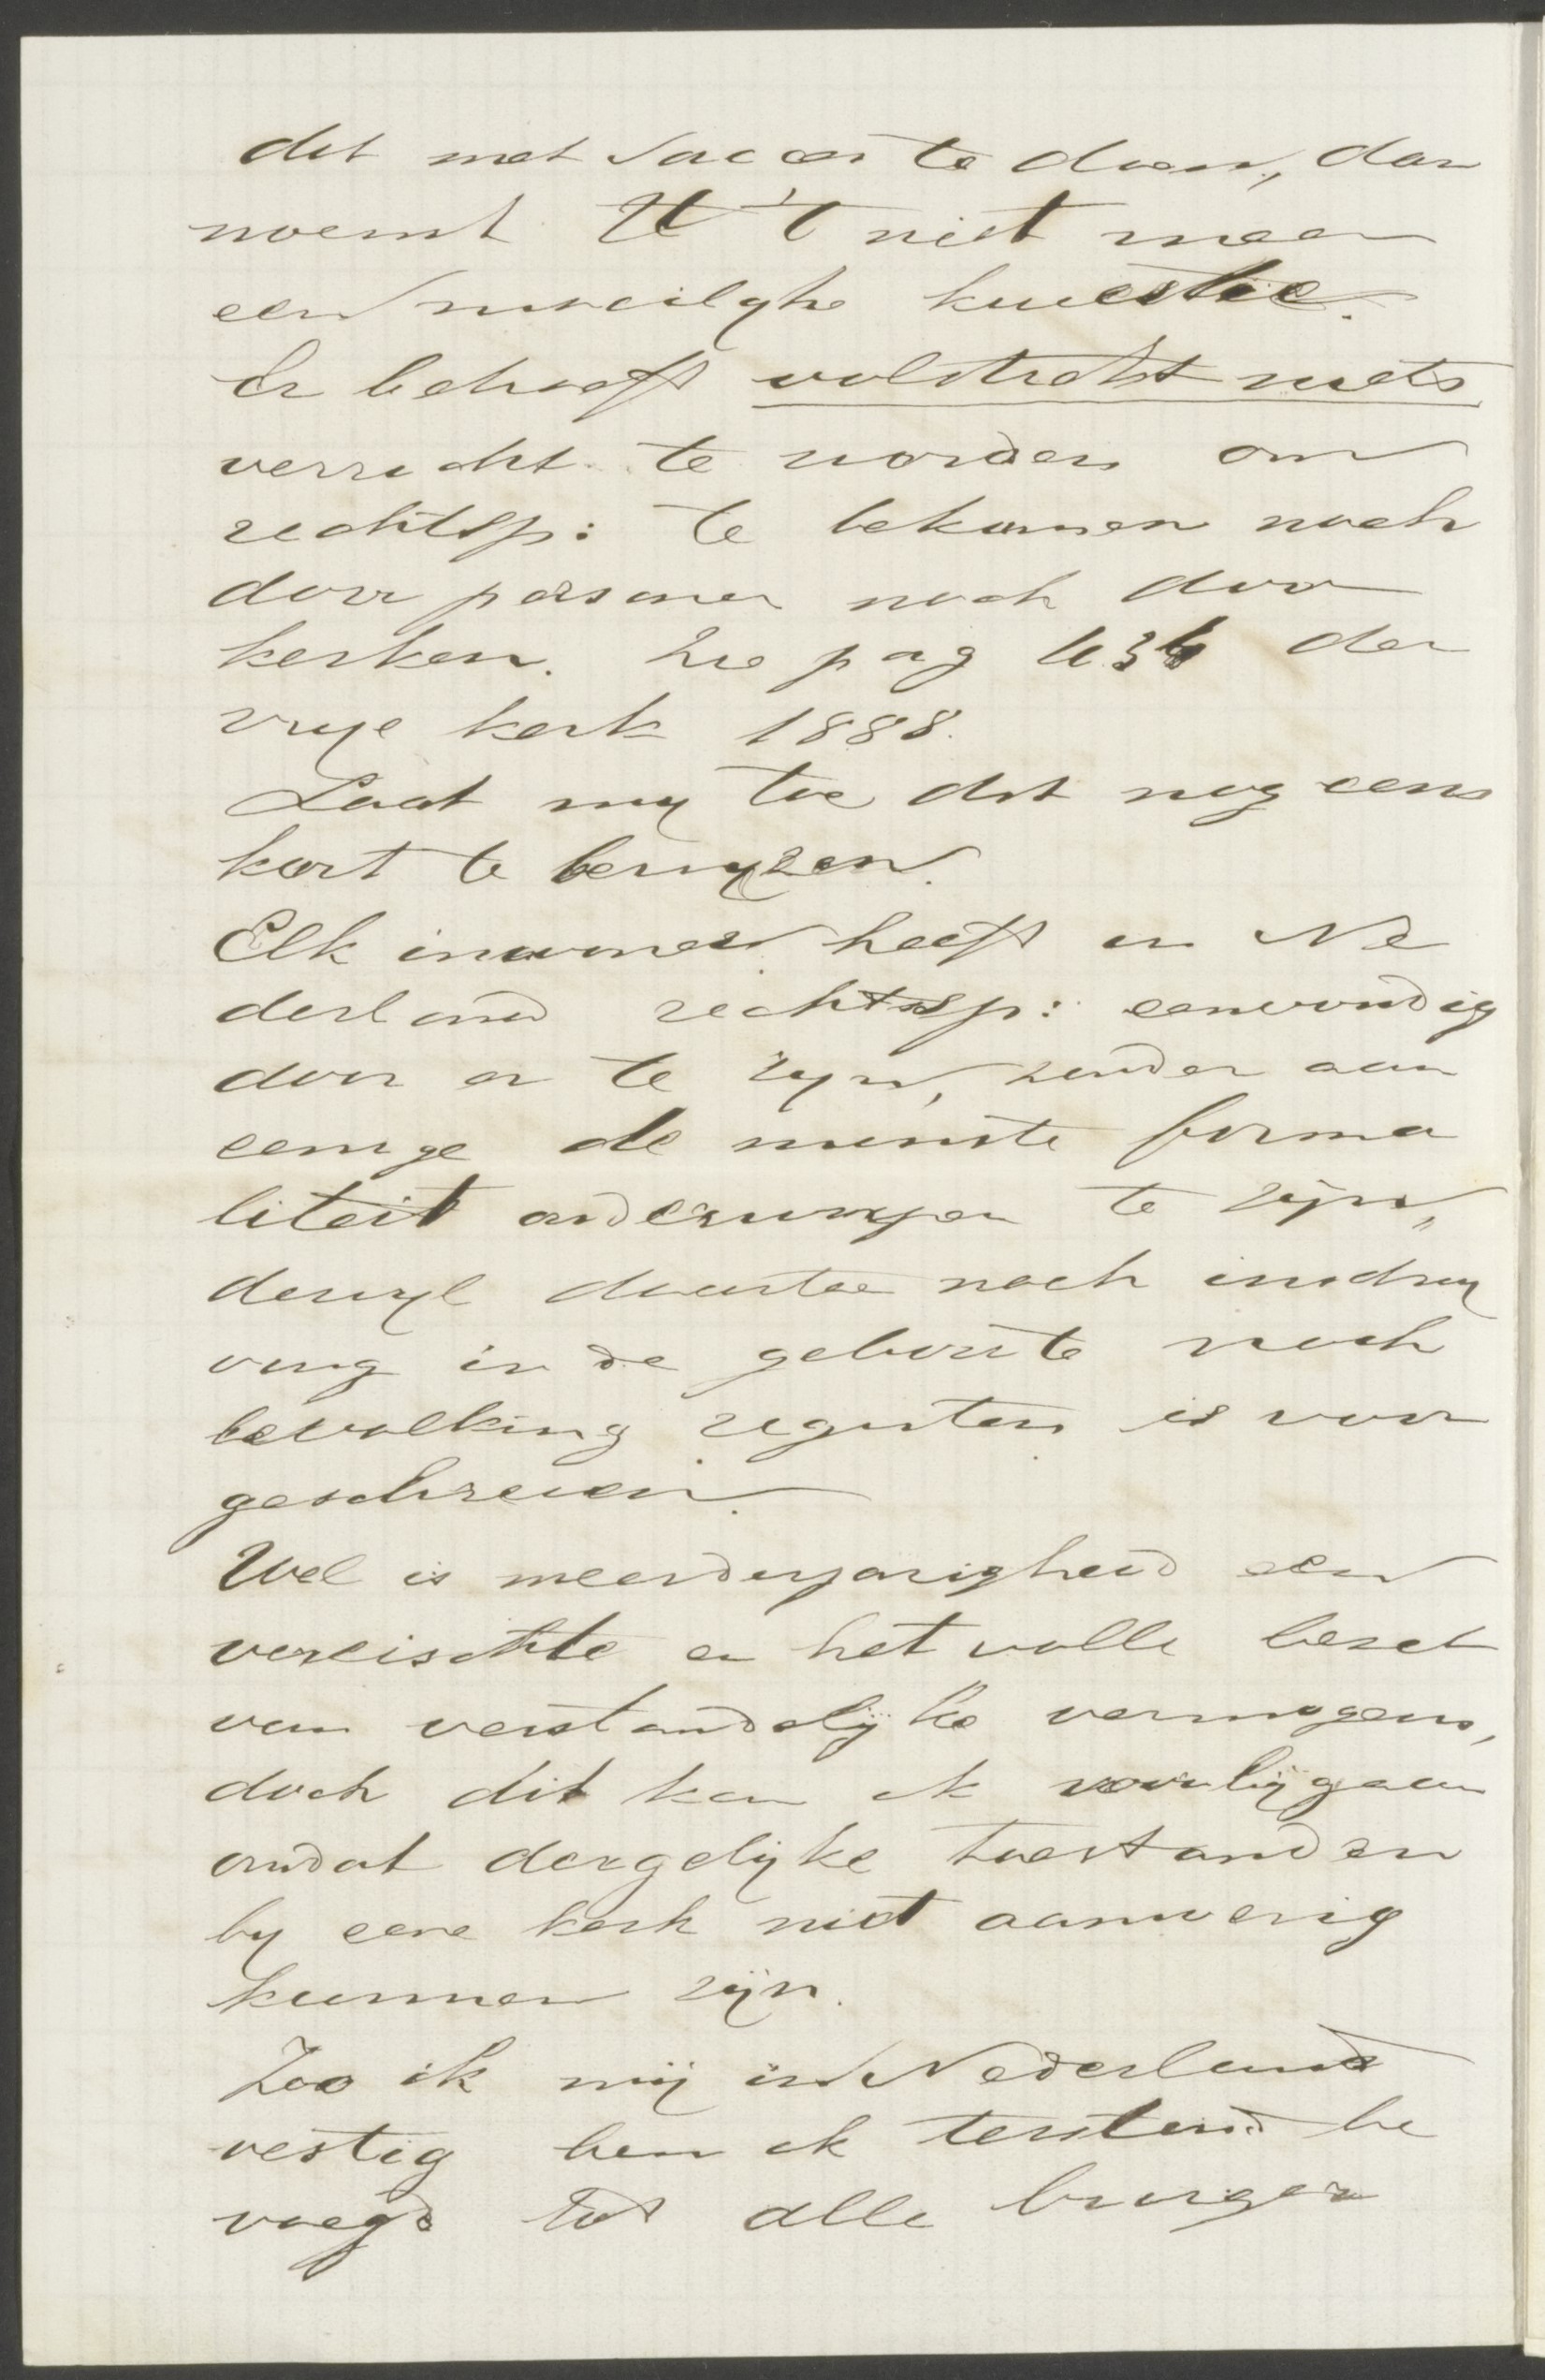 dit met succes te doen, dan
noemt U 't niet meer
een moeilyke kwestie.
Er behoeft volstrekt niets
verricht te worden om
rechtsp: te bekomen noch
door personen noch door
kerken. Zie pag 636 der
vrye kerk 1888.
Laat my toe dit nog eens
kort te bewyzen.
Elk inwoner heeft in Ne
derland rechtsp: eenvoudig
door er te zyn, zonder aan
eenige de minste forma
liteit onderworpen te zijn,
dewyl daartoe noch inschry
ving in de geboorte noch
bevolking registers is voor
geschreven.
Wel is meerderjarigheid een
vereischte en het volle bezit
van verstandelijke vermogens,
doch dit kan ik voorbijgaan
omdat dergelijke toestanden
by eene kerk niet aanwezig
kunnen zijn.
Zoo ik mij in Nederland
vestig ben ik terstond be
voegd tot alle burger